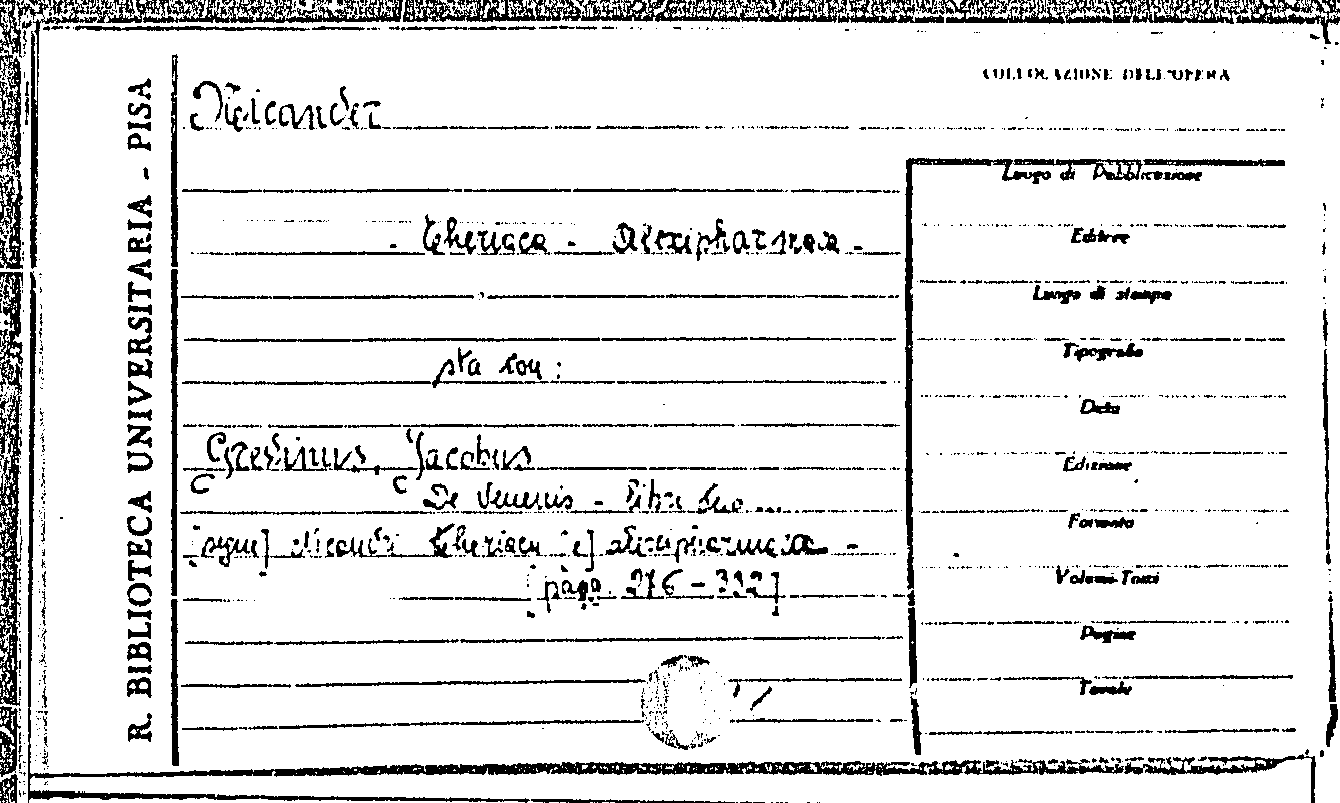 R. BIBLIOTECA UNIVERSITARIA - PISA
COLLOCAZIONE DELL'OPERA
Nicander
Luogo di Pubblicazione
- Theriaca - Alexipharmaca -
Editore
Luogo di stampa
sta con:
Tipografia
Data
Grevinus, Jacobus
Edizione
De Venenis - Libri duo...
Formato
[segue] Nicandri Theriaca [e] alexipharmaca -
Volumi-Tomi
[pagg. 276 - 332]
Pagine
Tavole